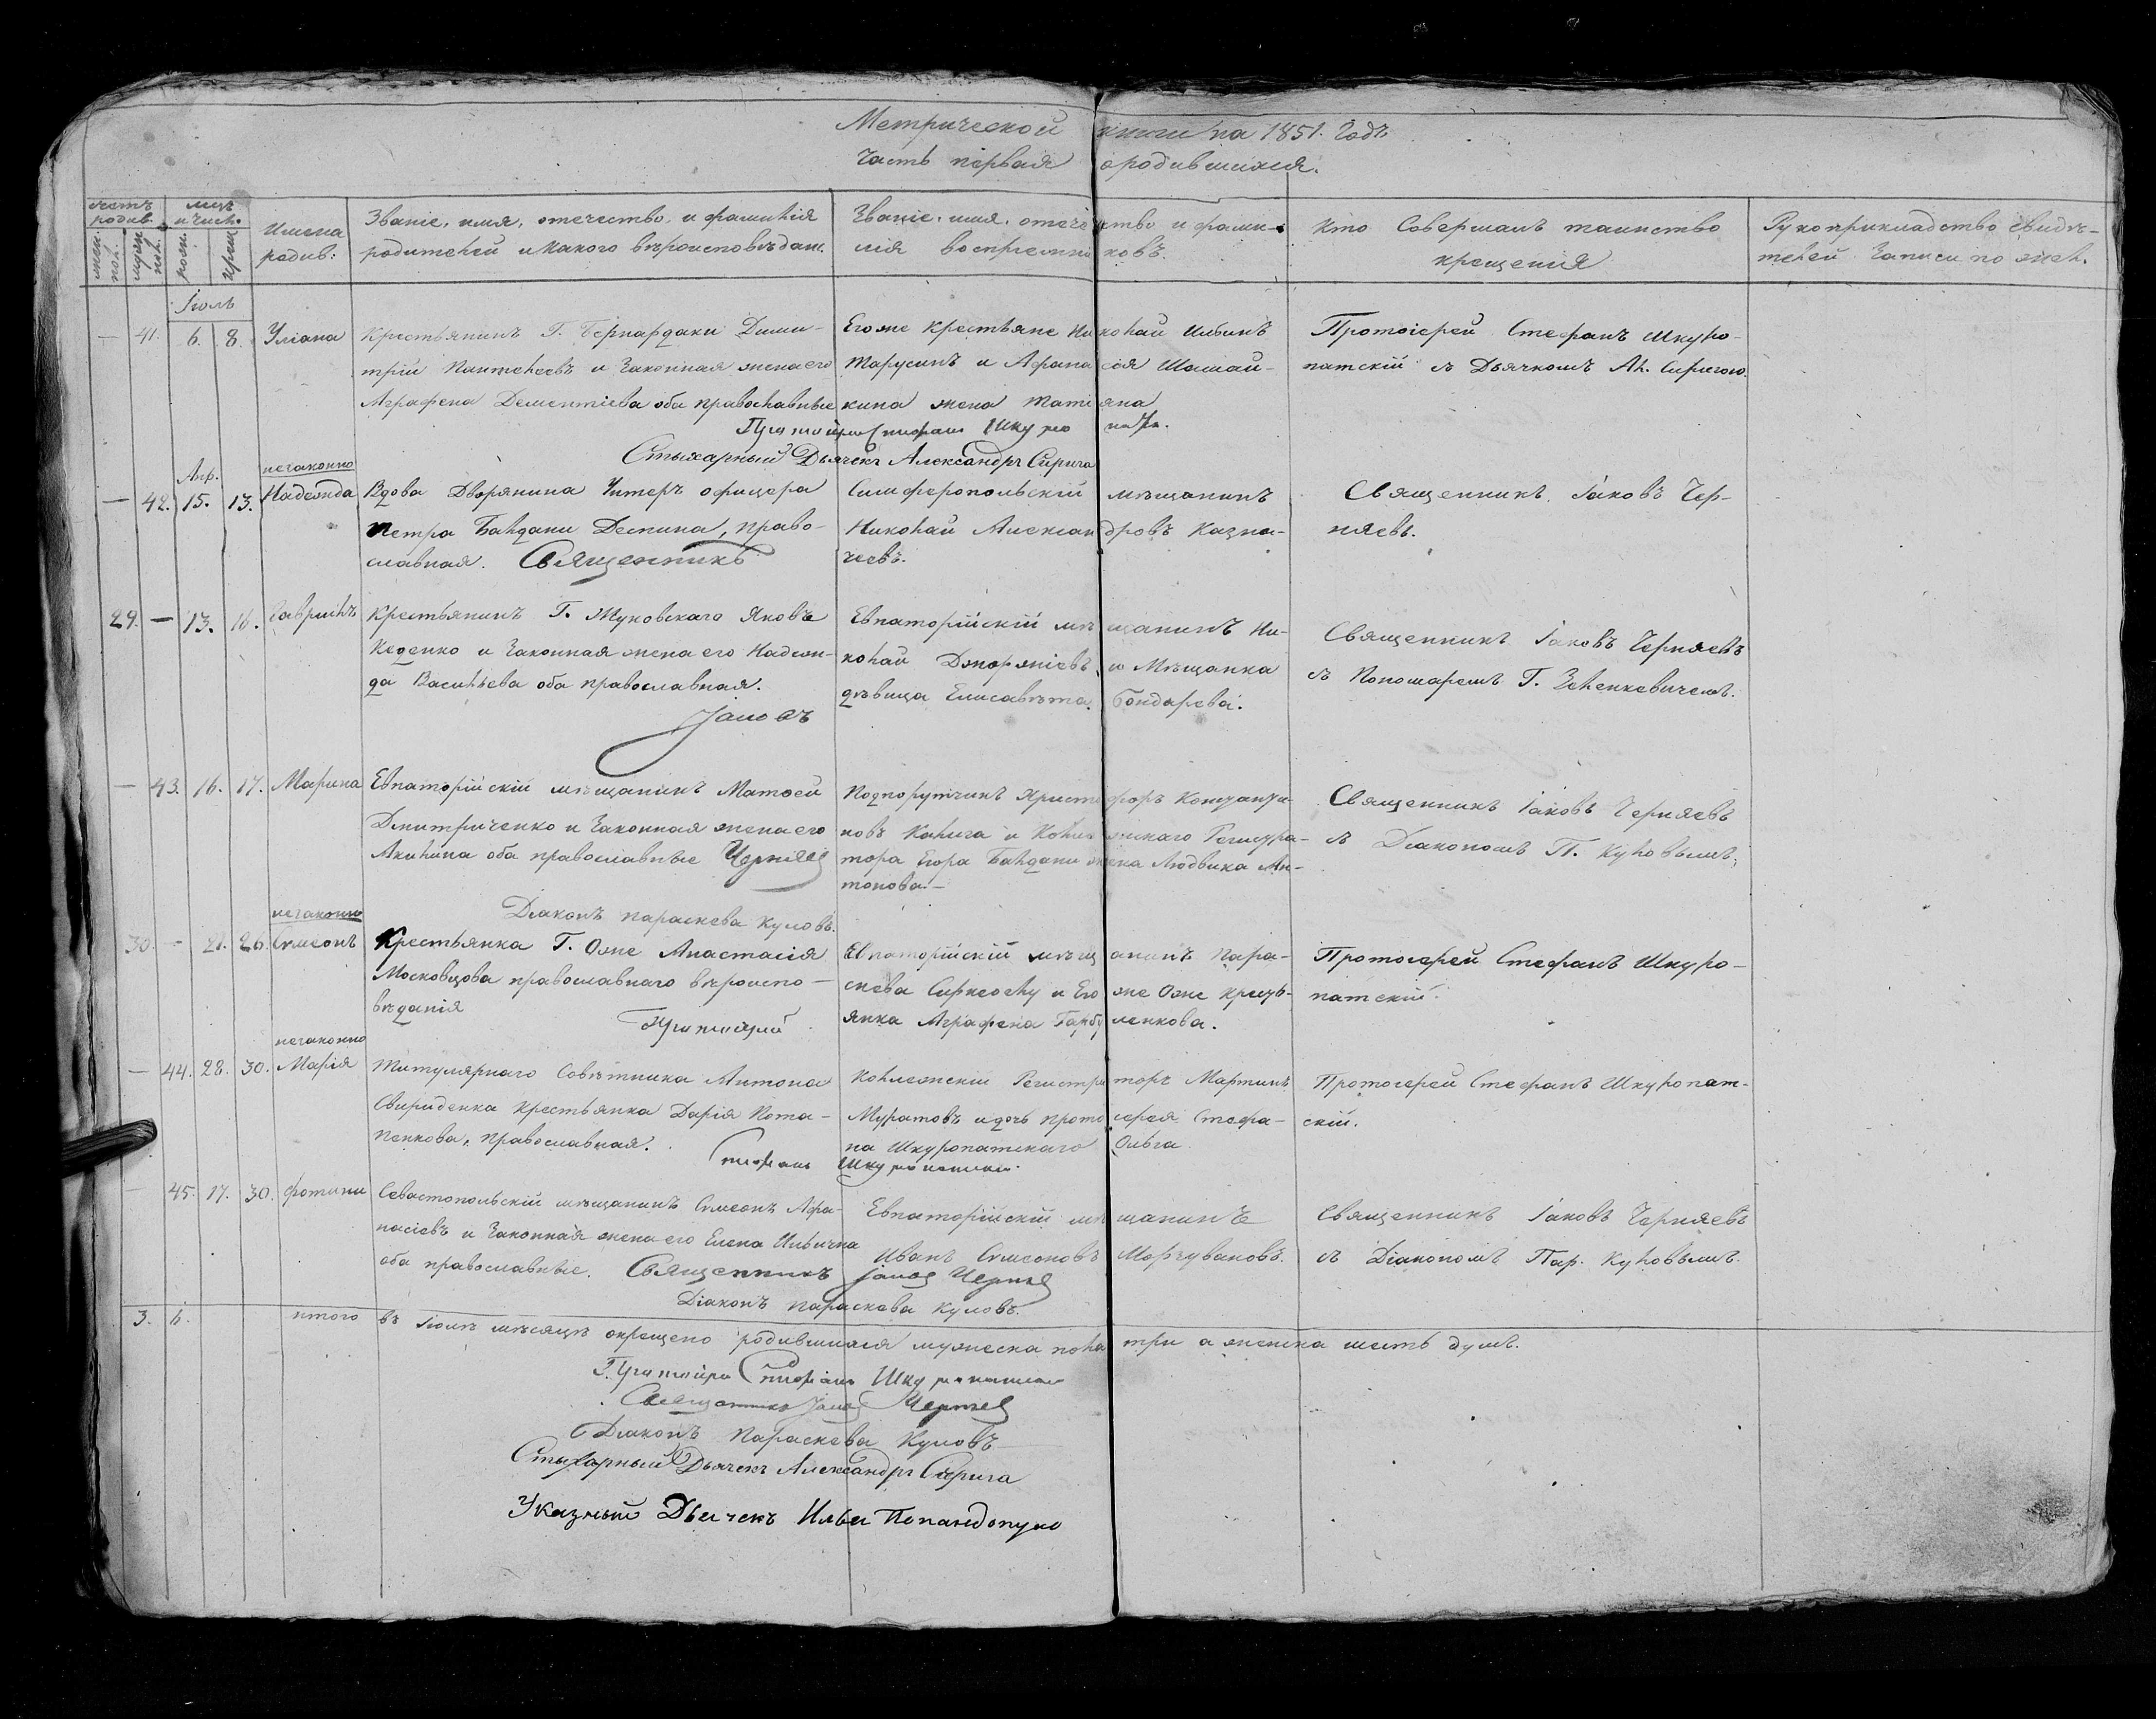 Метрической книги на 1851. Годъ
Часть первая о родившихся.
Имена родив:
Званіе, имя, отечество, и фамилія
родителей и какого вѣроисповѣдан.
Званіе, имя, отечество и фами-
лія воспріемниковъ.
Кто Совершалъ таинство
крещенія
Рукоприкладство свидѣ-
телей Записи по жел.
Іюль
— 41. 6. 8. Уліана
Крестьянинъ Г. Бернардаки Дими-
трій Пантелеевъ и Законная жена его
Аграфена Дементіева оба православные
Егоже крестьяне Николай Ильинъ
Тарусинъ и Афанасія Шашай-
кина жена Татіяна
Протоіерей Стефанъ Шкуро-
патскій съ Дьячкомъ Ал. Сиригою.
Стихарный Дьячекъ Александръ Сирига
незаконно
Апр.
— 42. 15. 13. Надежда
Вдова Дворянина Унтеръ офицера
Петра Балдани Деспина, право-
славная. Священникъ
Симферопольскій мѣщанинъ
Николай Александровъ Казна-
чеевъ.
Священникъ Іаковъ Чер-
няевъ.
29. — 13. 16. Гавріилъ
Крестьянинъ Г. Жуковскаго Яковъ
Кеденко и Законная жена его Надеж-
да Васильева оба православная.
Іаковъ
Евпаторійскій мѣщанинъ Ни-
колай Джоржіевъ, и Мѣщанка
дѣвица Елисавѣта Бондарева.
Священникъ Іаковъ Черняевъ
съ Пономаремъ Г. Зеленкевичемъ.
— 43. 16. 17. Марина
Евпаторійскій мѣщанинъ Матѳей
Дмитриченко и Законная жена его
Акилина оба православные Черняев
Подпоручикъ Христофоръ Константи-
новъ Калига и Колежскаго Регистра-
тора Егора Балдани жена Людвика Ан-
тонова.—
Священникъ Іаковъ Черняевъ
съ Діакономъ П. Куловымъ.
Діаконъ Параскева Куловъ.
незаконно
30. — 21. 26. Симеонъ
Крестьянка Г. Оже Анастасія
Московцова православнаго вѣроиспо-
вѣданія
Протоіерей
Евпаторійскій мѣщанинъ Пара-
скева Сиркеоглу и Его же Оже кресть-
янка Аграфена Гарбуленкова.
Протоіерей Стефанъ Шкуро-
патскій.
незаконно
— 44. 28. 30. Марія
Титулярнаго Совѣтника Антона
Свириденка крестьянка Дарія Пота-
пенкова, православная.
Колежскій Регистраторъ Мартинъ
Муратовъ и дочь протоіерея Стефа-
на Шкуропатскаго Ольга
Протоіерей Стефанъ Шкуропат-
скій.
— 45. 17. 30. Фотинія
Севастопольскій мѣщанинъ Симеонъ Афа-
насіевъ и Законная жена его Елена Ильична
оба православные. Священникъ Іаков Черняев
Евпаторійскій мѣщанинъ
Иванъ Симеоновъ Моргувановъ.
Священникъ Іаковъ Черняевъ
съ Діакономъ Пар. Куловымъ.
Діаконъ Параскева Куловъ.
3. 6. итого въ Іюлѣ мѣсяцѣ окрещено родившихся мужеска пола три а женска шесть душъ.
Священникъ Іаков Черняев
Діаконъ Параскева Куловъ
Стихарный Дьячекъ Александръ Сирига
Указный Дьячекъ Илья Попандопуло